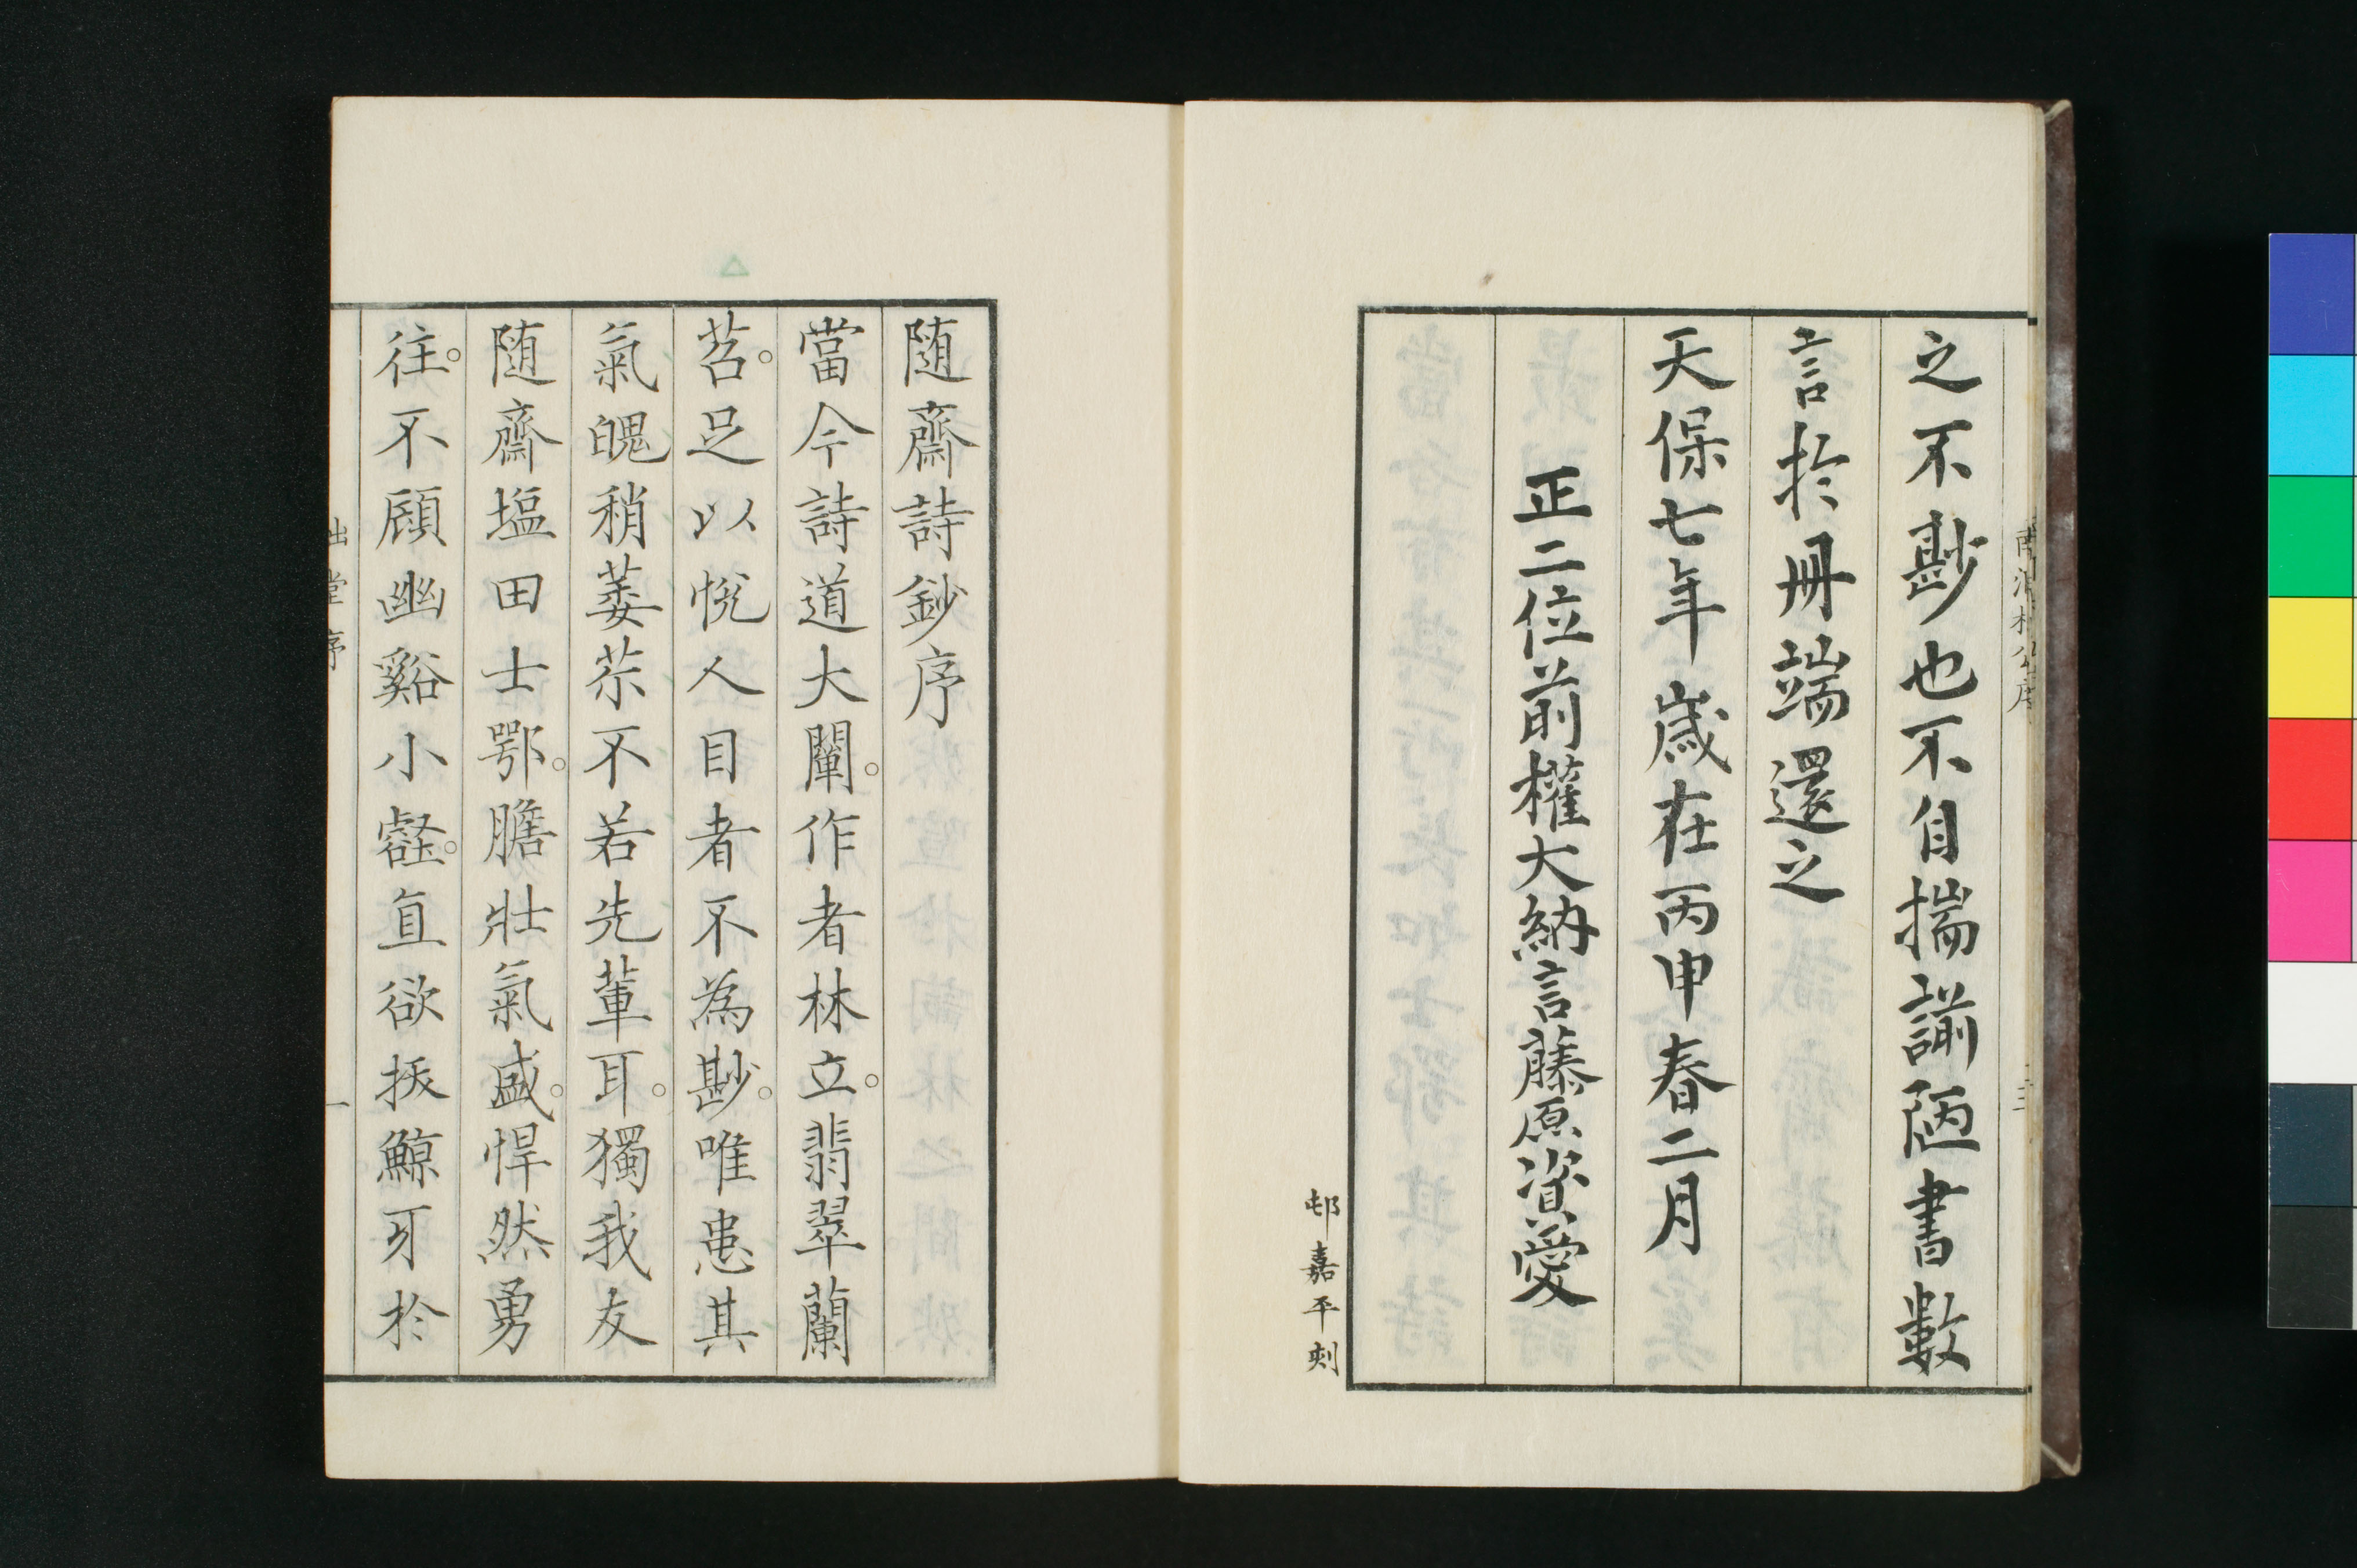 之不尠也不自揣謭陋書數
言於冊端還之
天保七年歲在丙申春二月
正二位前權大納言藤原資愛
邨嘉平刻
随齋詩鈔序
當今詩道大闡。作者林立。翡翠蘭
苕。足以悅人目者不為尠。唯患其
氣魄稍萎苶不若先輩耳。獨我友
随齋塩田士鄂。膽壯氣盛。悍然勇
往。不顧幽谿小壑。直欲拔鯨牙於
堂序
一